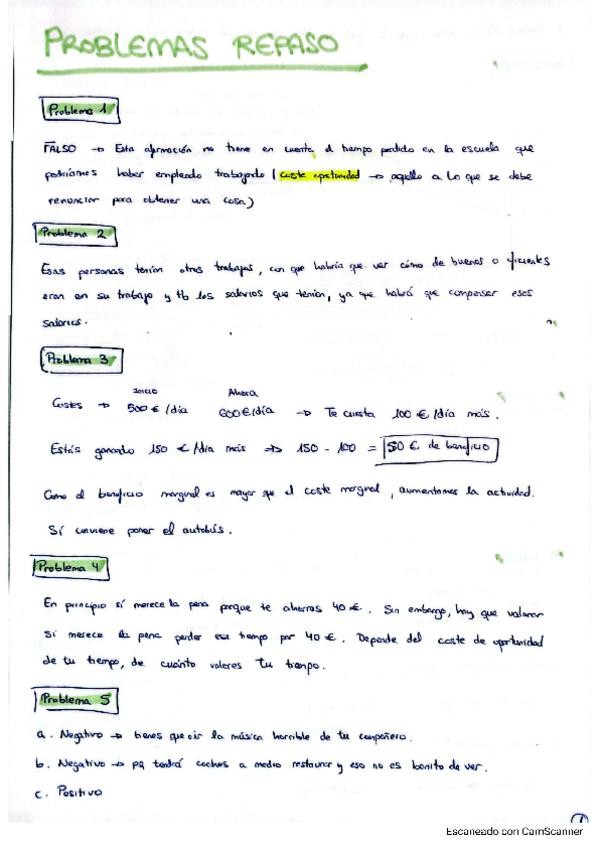 PROBLEMAS REPASO
Problema 1
FALSO → Esta afirmación no tiene en cuenta el tiempo perdido en la escuela que
podríamos haber empleado trabajando (coste oportunidad → aquello a lo que se debe
renunciar para obtener una cosa)
Problema 2
Esas personas tenían otros trabajos, con que habría que ver cómo de buenos o eficientes
eran en su trabajo y tb los salarios que tenían, ya que habrá que compensar esos
salarios.
Problema 3
Inicio Ahora
Costes → 500 € /día 600€/día → Te cuesta 100 € /día más.
Estás ganando 150 € /día más ⇒ 150 - 100 = 50 € de beneficio
Como el beneficio marginal es mayor que el coste marginal, aumentamos la actividad.
Sí conviene poner el autobús.
Problema 4
En principio sí merece la pena porque te ahorras 40 €. Sin embargo, hay que valorar
si merece la pena perder ese tiempo por 40 €. Depende del coste de oportunidad
de tu tiempo, de cuánto valores tu tiempo.
Problema 5
a. Negativo → tienes que oir la música horrible de tu compañero.
b. Negativo → pq tendrá coches a medio restaurar y eso no es bonito de ver.
c. Positivo
1
Escaneado con CamScanner